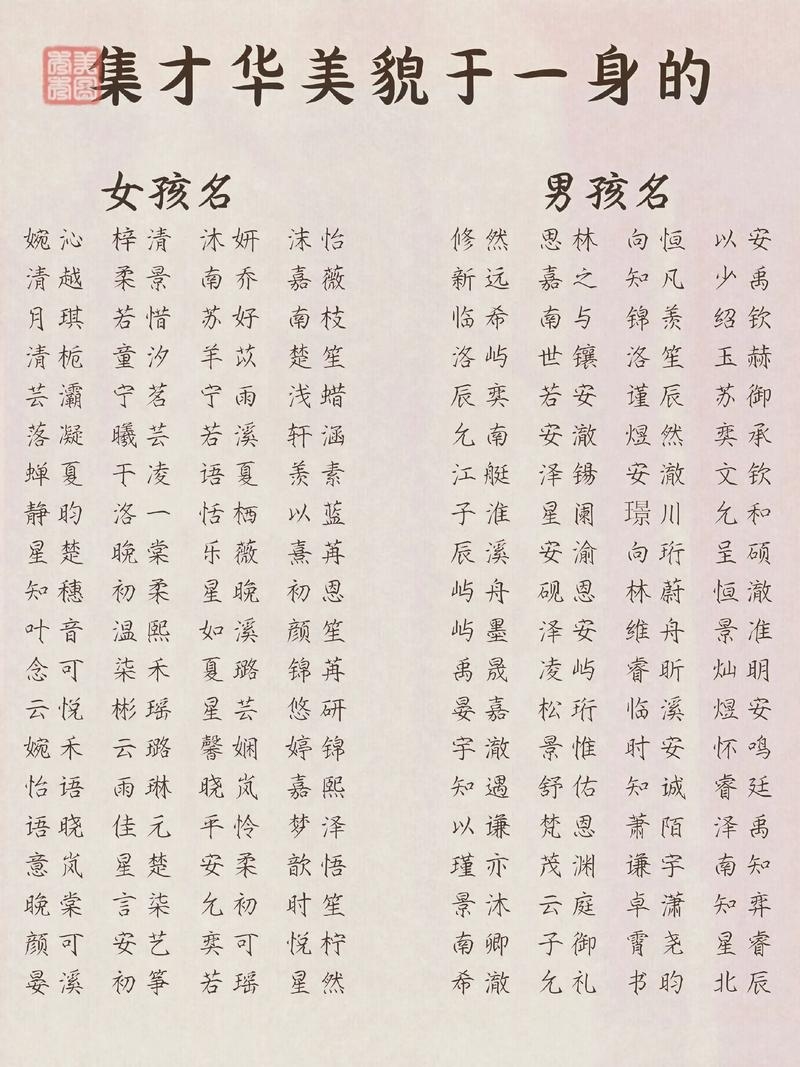 集才华美貌于一身的
女孩名 男孩名
婉沁 梓清 沐妍 沫怡 修然 思林 向恒 以安
清越 柔景 南乔 嘉薇 新远 嘉之 知凡 少禹
月琪 若惜 苏好 南枝 临希 南与 锦羡 绍钦
清栀 童汐 羊苡 楚笙 洛屿 世镶 洛笙 玉赫
芸灞 宁茗 宁雨 浅蜡 辰奕 若安 谨辰 苏御
落凝 曦芸 若溪 轩涵 允南 安澈 煜然 奕承
蝉夏 于凌 语夏 羡素 江艇 泽锡 安澈 文钦
静昀 洛一 恬栖 以蓝 子淮 星阑 璟川 允和
星楚 晚棠 乐薇 熹苒 辰溪 安渝 向珩 呈硕
知穗 初柔 星晚 初恩 屿舟 砚恩 林蔚 恒澈
叶音 温熙 如溪 颜笙 屿墨 泽安 维舟 景准
念可 柒禾 夏璐 锦苒 禹晟 凌屿 睿昕 灿明
云悦 彬瑶 星芸 悠研 晏嘉 松珩 临溪 煜安
婉禾 云璐 馨娴 婷锦 宇澈 景惟 时安 怀鸣
怡语 雨琳 晓岚 嘉熙 知遇 舒佑 知诚 睿廷
语晓 佳元 平怜 梦泽 以谦 梵恩 萧陌 泽禹
意岚 星楚 安柔 歆悟 瑾亦 茂渊 谦宇 南知
晚棠 言柒 允初 时笙 景沐 云庭 卓潇 知弈
颜可 安艺 奕可 悦柠 南卿 子御 霄尧 星睿
晏溪 初筝 若瑶 星然 希澈 允礼 书昀 北辰